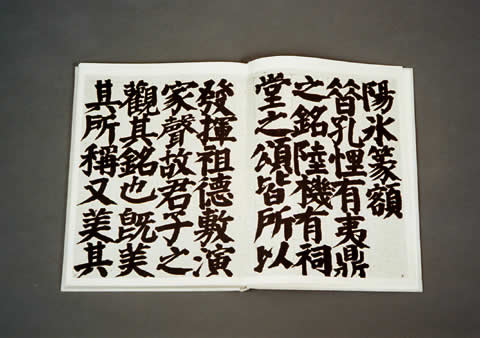 陽氷篆額
昔孔悝有夷鼎
之銘陸機有祠
堂之頌皆所以
發揮祖德敷演
家聲故君子之
觀其銘也既美
其所稱又美其